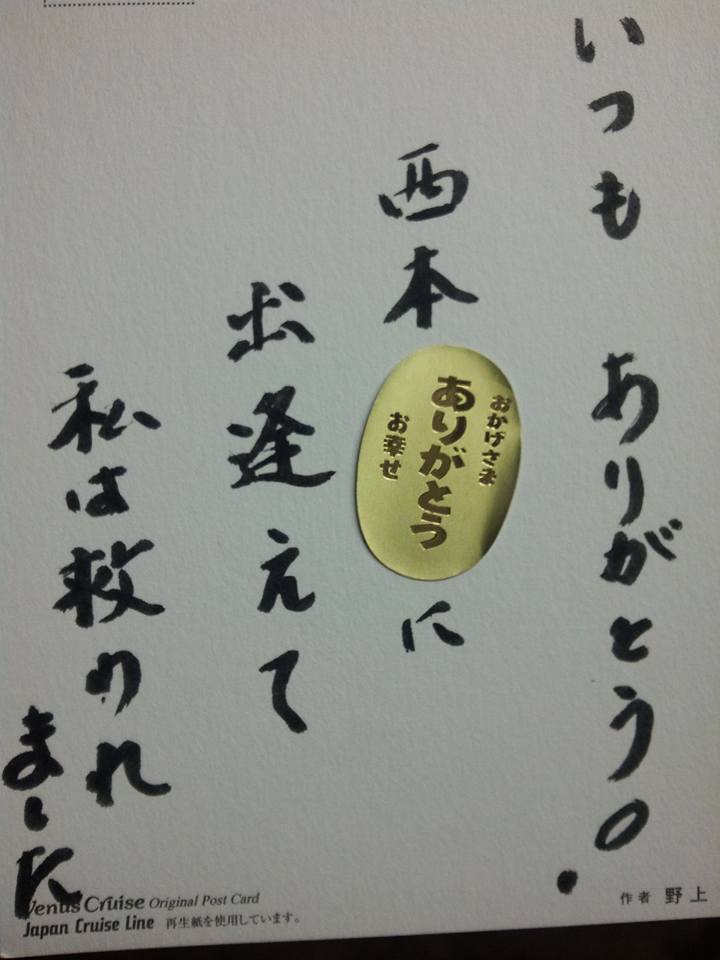 いつも ありがとう。
西本
おかげさま
ありがとう
お幸せ
に
出逢えて
私は救われ
ました
作者 野上
Venus Cruise Original Post Card
Japan Cruise Line 再生紙を使用しています。